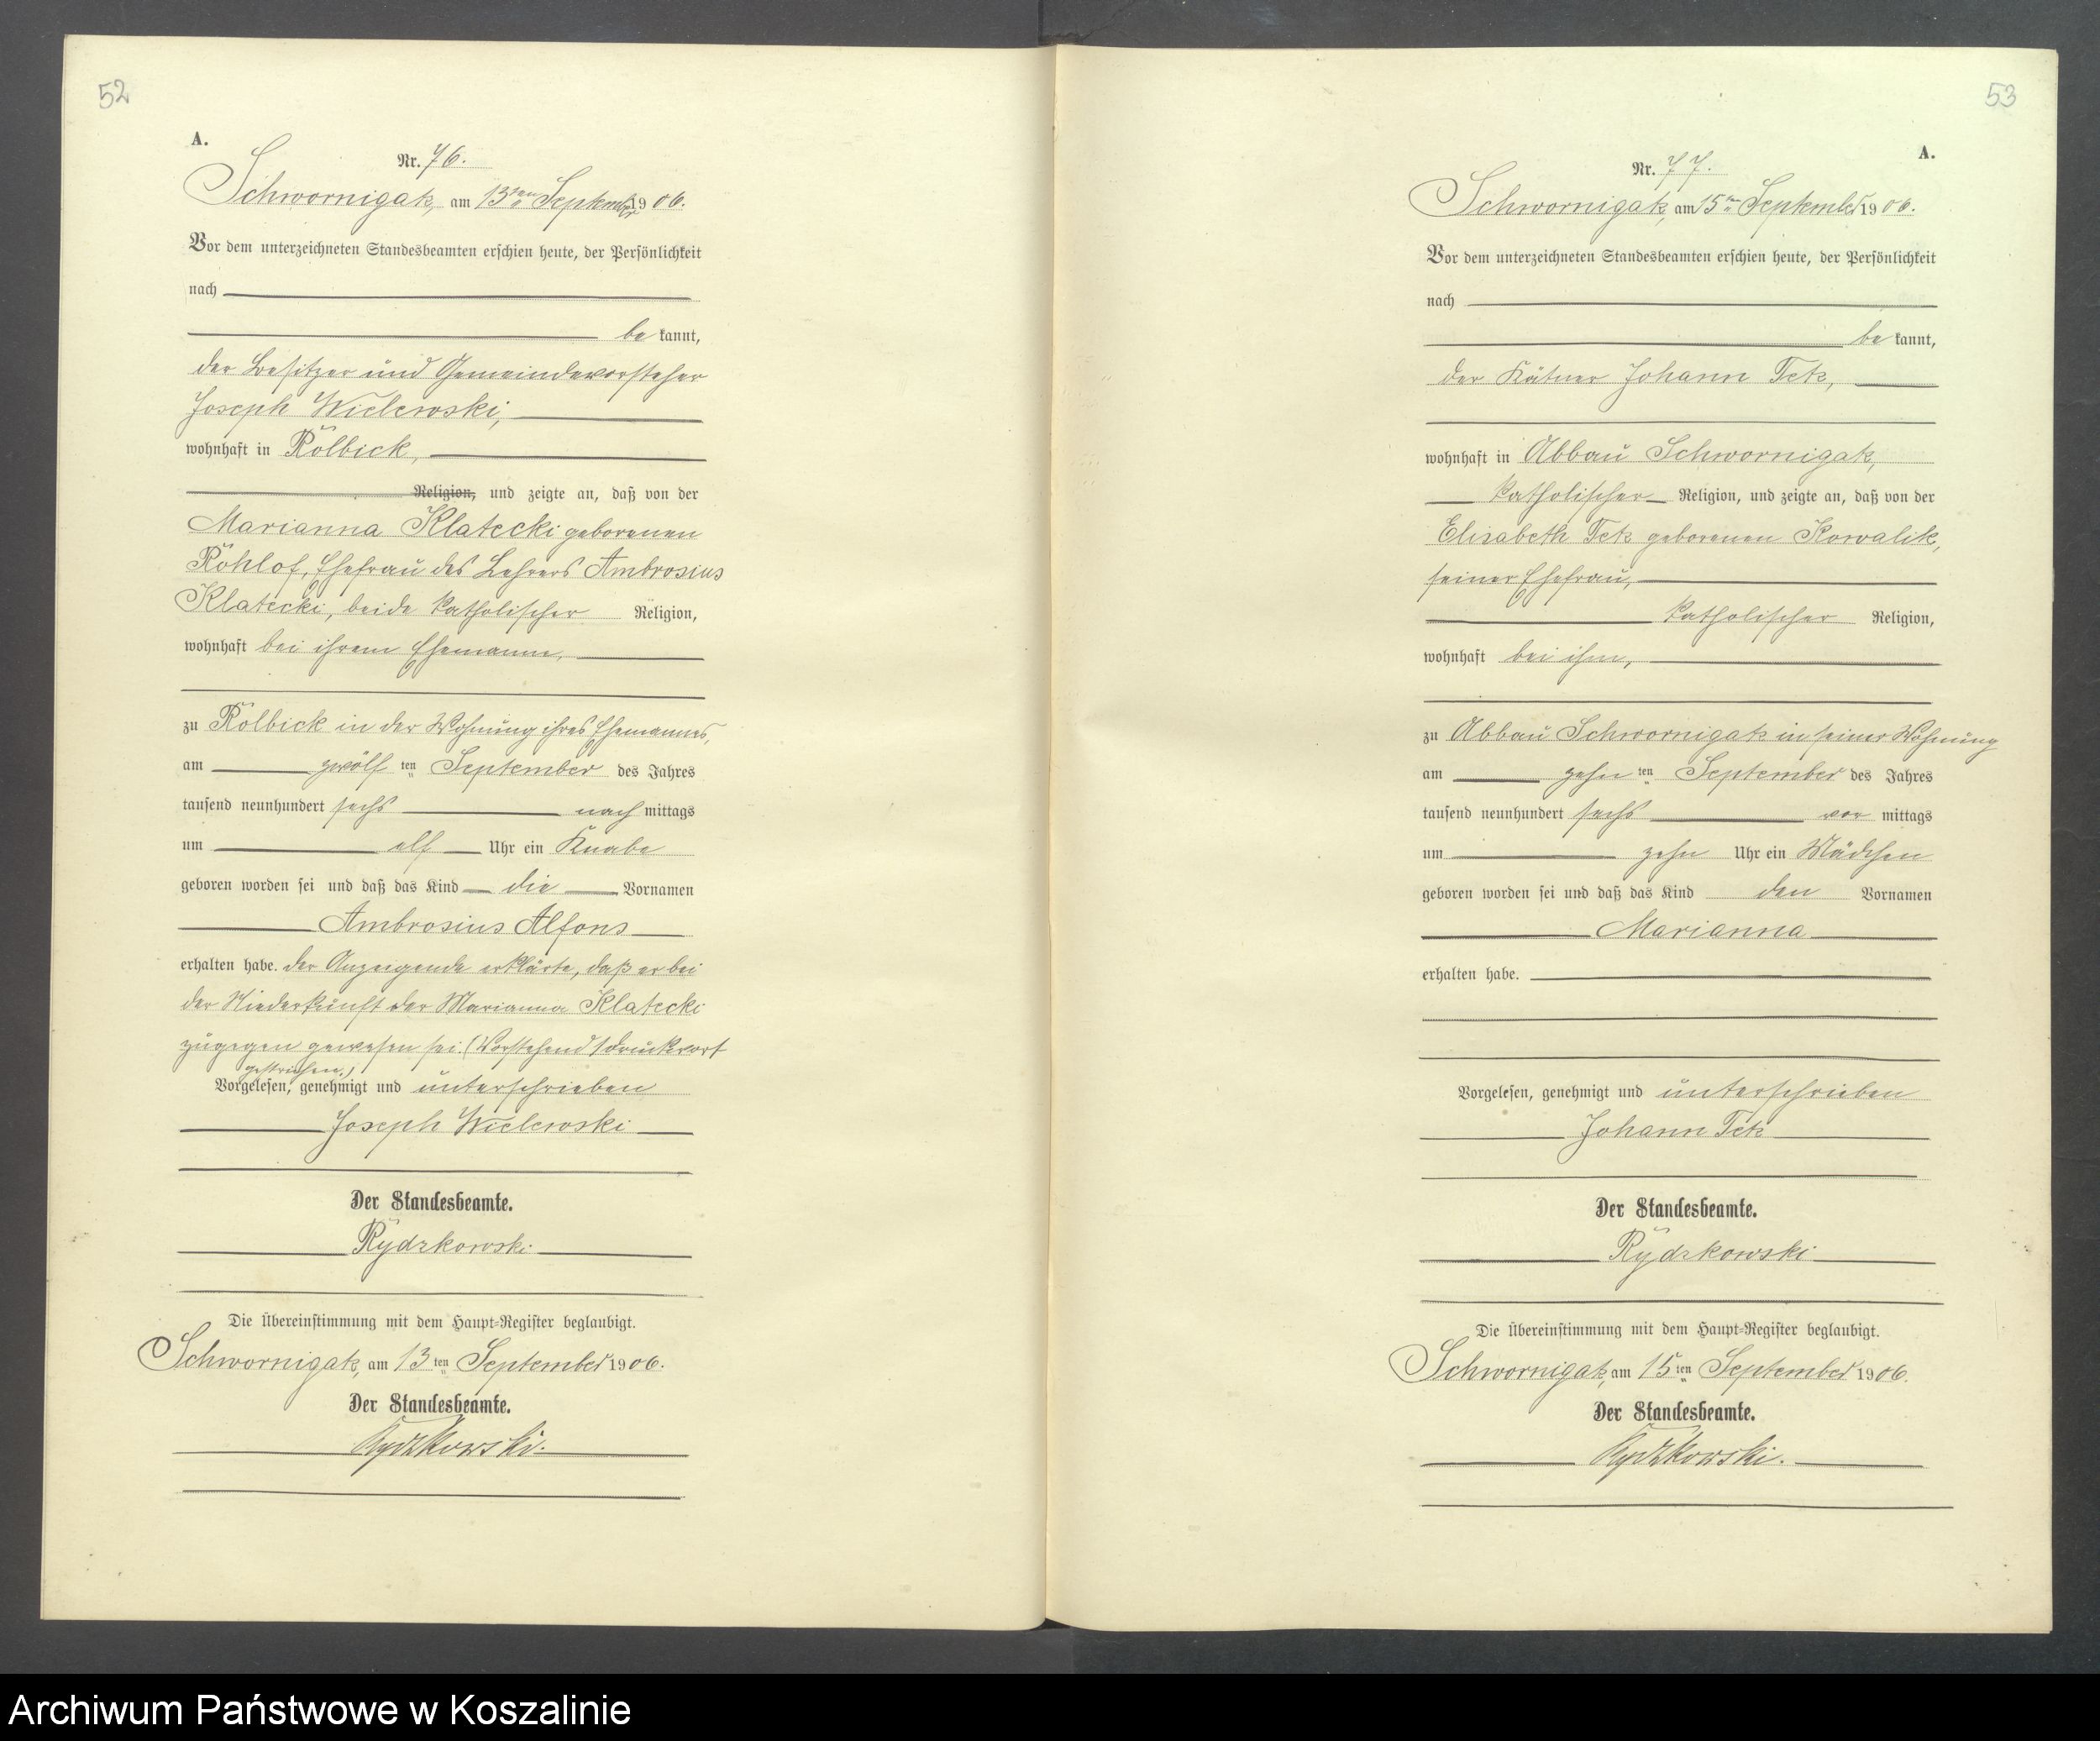 52
A.
Nr. 76.
Schwornigatz, am 13ten September 1906.
Vor dem unterzeichneten Standesbeamten erschien heute, der Persönlichkeit
nach
be kannt,
der Besitzer und Gemeindevorsteher
Joseph Wielewski,
wohnhaft in Rolbick,
Religion, und zeigte an, daß von der
Marianna Klatecki geborenen
Rohlof, Ehefrau des Lehrers Ambrosius
Klatecki, beide katholischer Religion,
wohnhaft bei ihrem Ehemanne,
zu Rolbick in der Wohnung ihres Ehemannes,
am zwölf ten September des Jahres
tausend neunhundert sechs nach mittags
um elf Uhr ein Knabe
geboren worden sei und daß das Kind die Vornamen
Ambrosius Alfons
erhalten habe. der Anzeigende erklärte, daß er bei
der Niederkunft der Marianna Klatecki
zugegen gewesen sei. (Vorstehend 1 Druckwort
gestrichen.)
Vorgelesen, genehmigt und unterschrieben
Joseph Wielewski
Der Standesbeamte.
Rydzkowski
Die Übereinstimmung mit dem Haupt-Register beglaubigt.
Schwornigatz, am 13 ten September 1906.
Der Standesbeamte.
Rydzkowski.
53
A.
Nr. 77.
Schwornigatz, am 15ten September 1906.
Vor dem unterzeichneten Standesbeamten erschien heute, der Persönlichkeit
nach
be kannt,
der Kätner Johann Tetz,
wohnhaft in Abbau Schwornigatz,
katholischer Religion, und zeigte an, daß von der
Elisabeth Tetz geborenen Kowalik,
seiner Ehefrau,
katholischer Religion,
wohnhaft bei ihm,
zu Abbau Schwornigatz in seiner Wohnung
am zehn ten September des Jahres
tausend neunhundert sechs vor mittags
um zehn Uhr ein Mädchen
geboren worden sei und daß das Kind den Vornamen
Marianna
erhalten habe.
Vorgelesen, genehmigt und unterschrieben
Johann Tetz
Der Standesbeamte.
Rydzkowski
Die Übereinstimmung mit dem Haupt-Register beglaubigt.
Schwornigatz, am 15 ten September 1906.
Der Standesbeamte.
Rydzkowski.
Archiwum Państwowe w Koszalinie